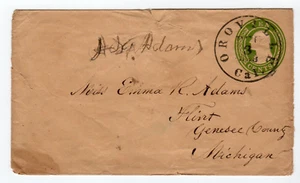 OROVILLE
CAL
Adams
Miss Emma R. Adams
Flint
Genesee County
Michigan